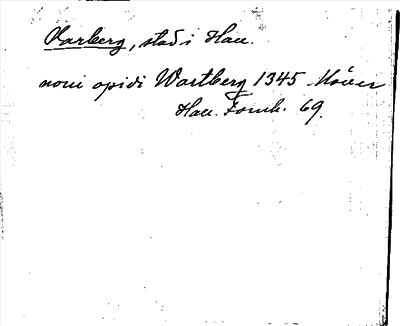 Varberg, stad i Hall.
novi opidi Wartberg 1345 Möller
Hall. Fornh. 69.